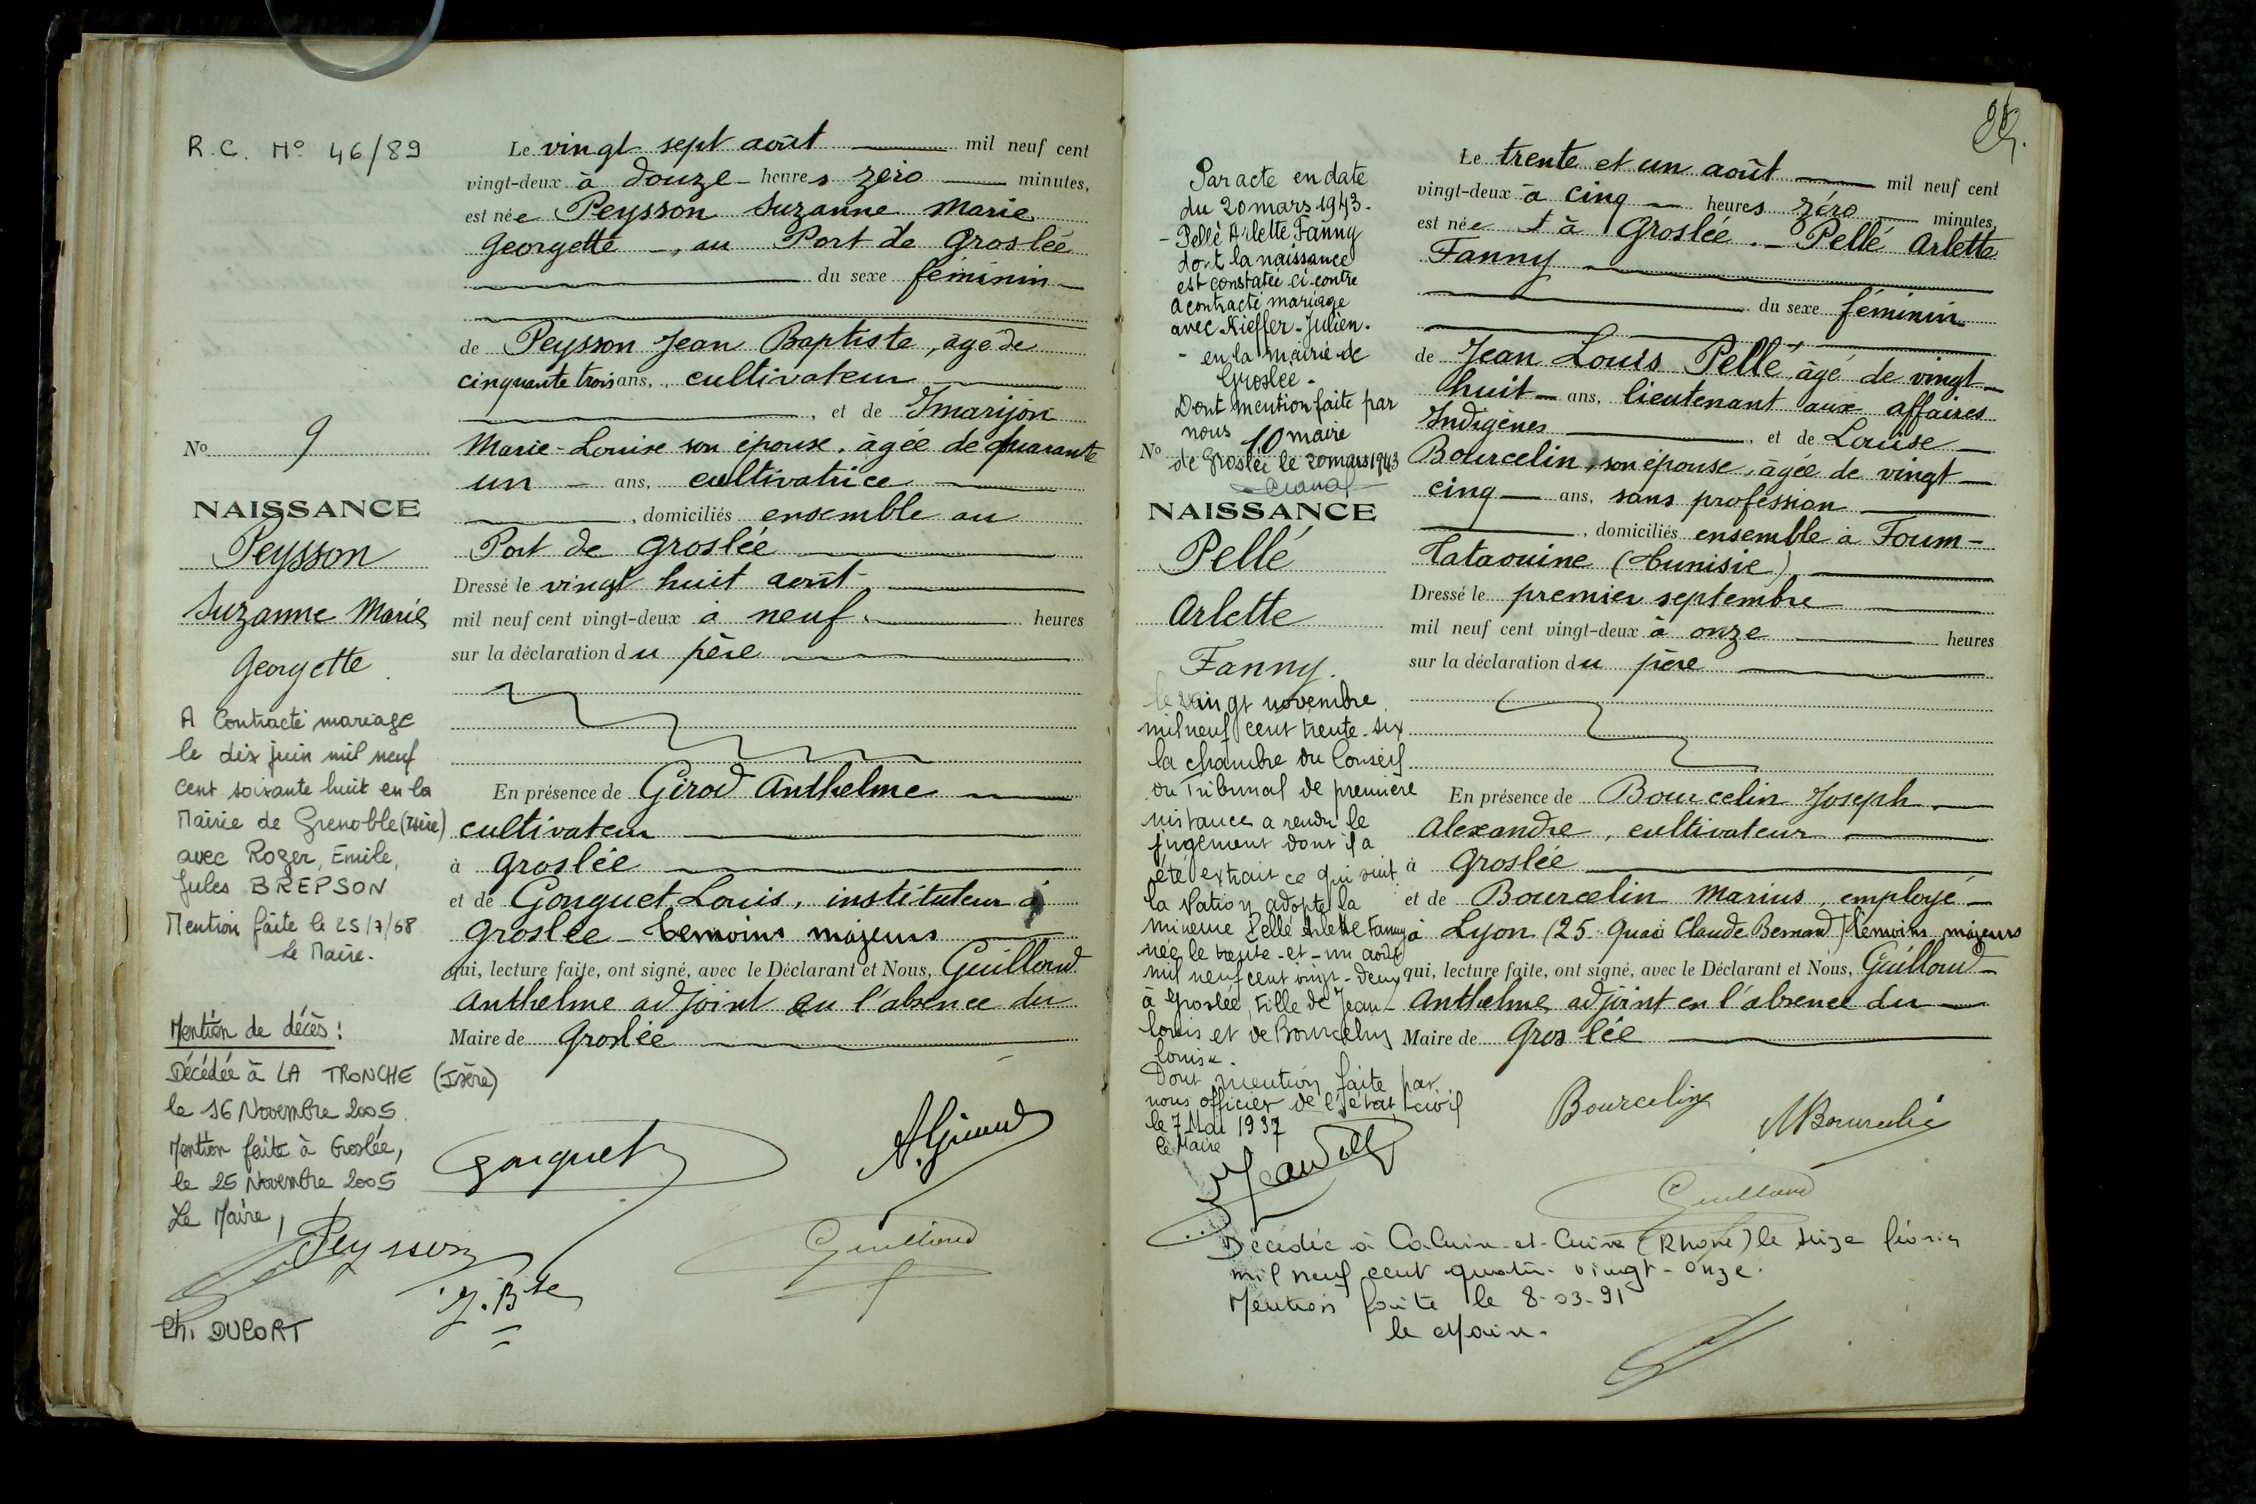 R.C. No 46/89
Le vingt sept août mil neuf cent
vingt-deux à douze heures zéro minutes,
est née Peysson Suzanne Marie
Georgette, au Port de Groslée
du sexe féminin
de Peysson Jean Baptiste, âgé de
cinquante trois ans, cultivateur
, et de Imarijon
Marie-Louise son épouse, âgée de quarante
un ans, cultivatrice
, domiciliés ensemble au
Port de Groslée
Dressé le vingt huit août
mil neuf cent vingt-deux à neuf heures
sur la déclaration du père
En présence de Girod Anthelme
cultivateur
à Groslée
et de Gonguet Louis, instituteur à
Groslée - témoins majeurs
qui, lecture faite, ont signé, avec le Déclarant et Nous, Guilloud
Anthelme adjoint en l'absence du
Maire de Groslée
No 9
NAISSANCE
Peysson
Suzanne Marie
Georgette
A Contracté mariage
le dix juin mil neuf
cent soixante huit en la
Mairie de Grenoble (Isère)
avec Roger, Emile,
Jules BREPSON
Mention faite le 25/7/68
Le Maire.
Mention de décès :
Décédée à LA TRONCHE (Isère)
le 16 Novembre 2005.
Mention faite à Groslée,
le 25 Novembre 2005
Le Maire,
Ch. DUPORT
Gonguet
A. Giroud
Peysson
J. Bte
Guilloud
Par acte en date
du 20 mars 1943.
- Pellé Arlette Fanny
dont la naissance
est constatée ci-contre
a contracté mariage
avec Kieffer-Julien.
- en la mairie de
Groslée.
Dont mention faite par
nous maire
de Groslée le 20 mars 1943
No 10
NAISSANCE
Pellé
Arlette
Fanny.
le vingt novembre
mil neuf cent trente-six
la chambre du Conseil
du Tribunal de première
instance a rendu le
jugement dont il a
été extrait ce qui suit
la Nation adopte la
mineure Pellé Arlette Fanny
née le trente-et-un août
mil neuf cent vingt-deux
à Groslée, fille de Jean-
Louis et de Bourcelin
Louise.
Dont mention faite par
nous officier de l'état civil
le 7 Mai 1937
le Maire
Le trente et un août mil neuf cent
vingt-deux à cinq heures zéro minutes,
est née à Groslée. - Pellé Arlette
Fanny
du sexe féminin
de Jean Louis Pellé, âgé de vingt
huit ans, lieutenant aux affaires
Indigènes, et de Louise
Bourcelin, son épouse, âgée de vingt
cinq ans, sans profession
, domiciliés ensemble à Foum-
Tataouine (Tunisie)
Dressé le premier septembre
mil neuf cent vingt-deux à onze heures
sur la déclaration du père
En présence de Bourcelin Joseph
Alexandre, cultivateur
à Groslée
et de Bourcelin Marius, employé
à Lyon (25 Quai Claude Bernard) témoins majeurs
qui, lecture faite, ont signé, avec le Déclarant et Nous, Guilloud
Anthelme, adjoint en l'absence du
Maire de Groslée
Bourcelin
MBourcelin
Guilloud
Décédée à Caluire-et-Cuire (Rhône) le seize février
mil neuf cent quatre-vingt-onze.
Mention faite le 8-03-91
le Maire.